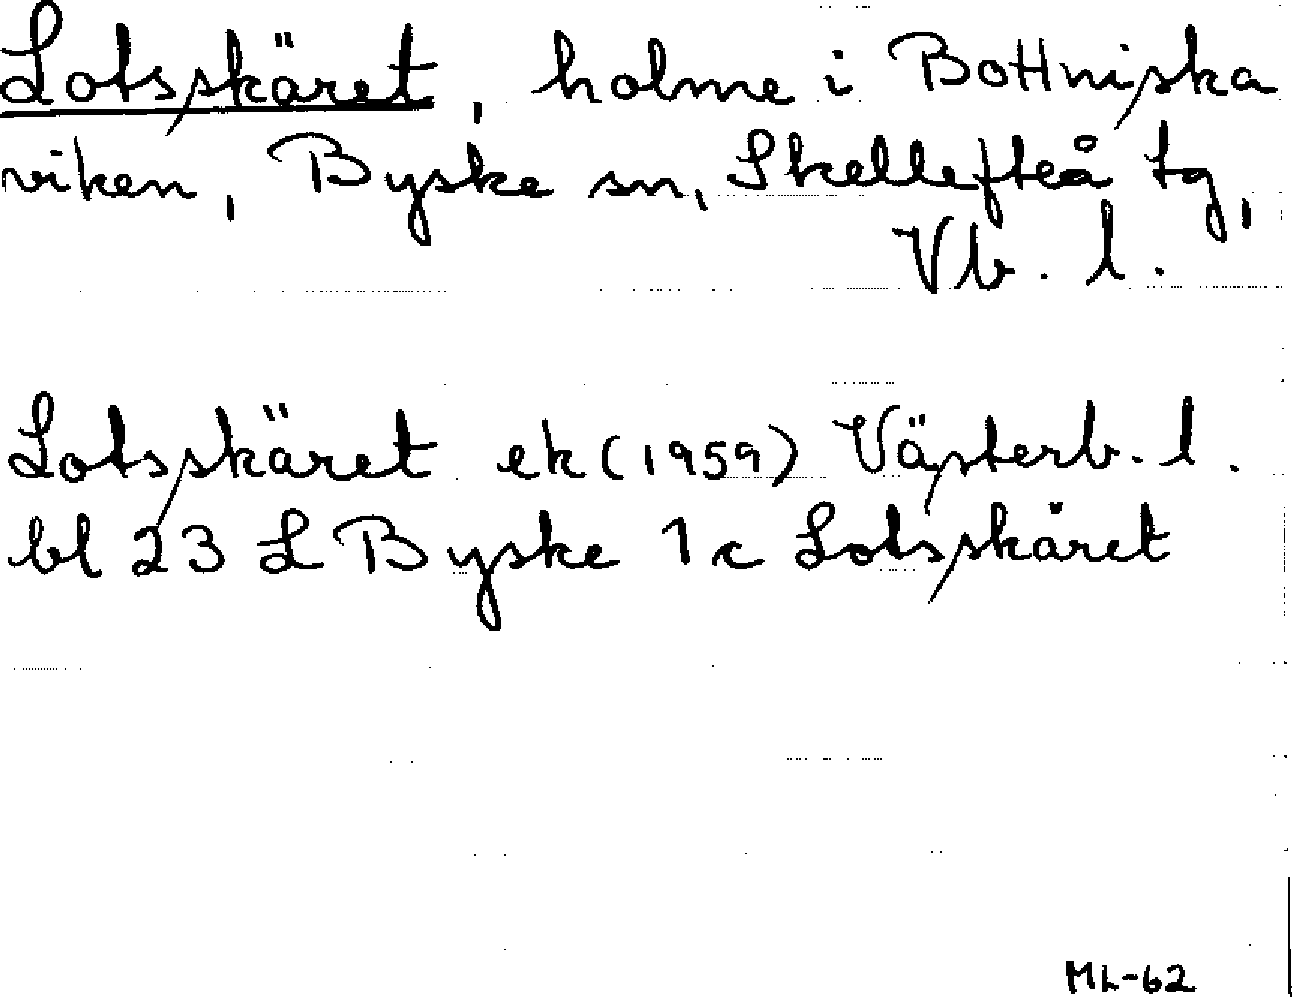 Lotsskäret, holme i Bottniska
viken, Byske sn, Skellefteå tg,
Vb. l.
Lotsskäret ek (1959) Västerb. l.
bl 23 L Byske 1 c Lotsskäret
ML-62